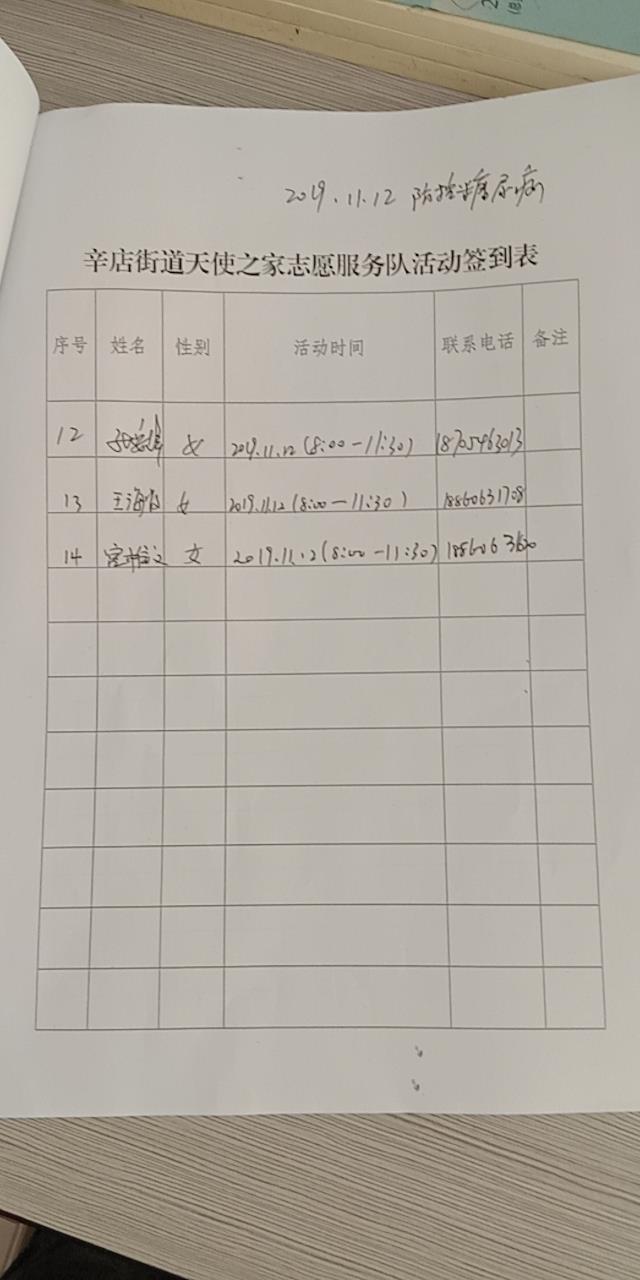 2019.11.12 防控糖尿病
辛店街道天使之家志愿服务队活动签到表
序号 姓名 性别 活动时间 联系电话 备注
12 女 2019.11.12 (8:00-11:30) 18705463013
13 女 2019.11.12 (8:00-11:30) 18860631708
14 女 2019.11.12 (8:00-11:30)